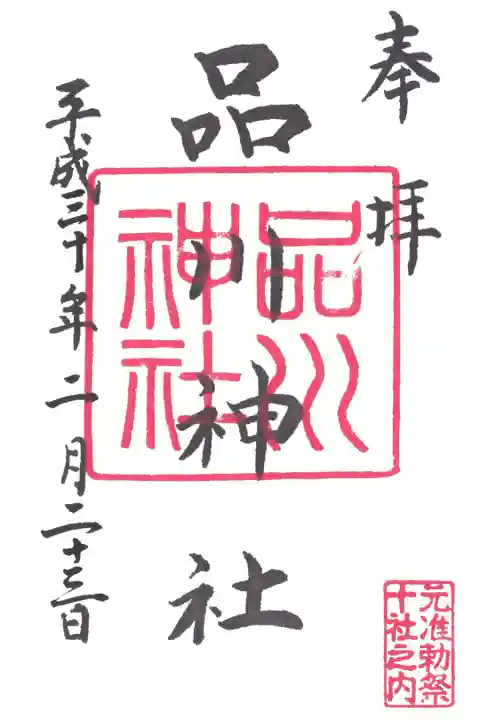 奉拝
品川神社
品川
神社
平成三十年二月二十三日
元准勅祭
十社之内